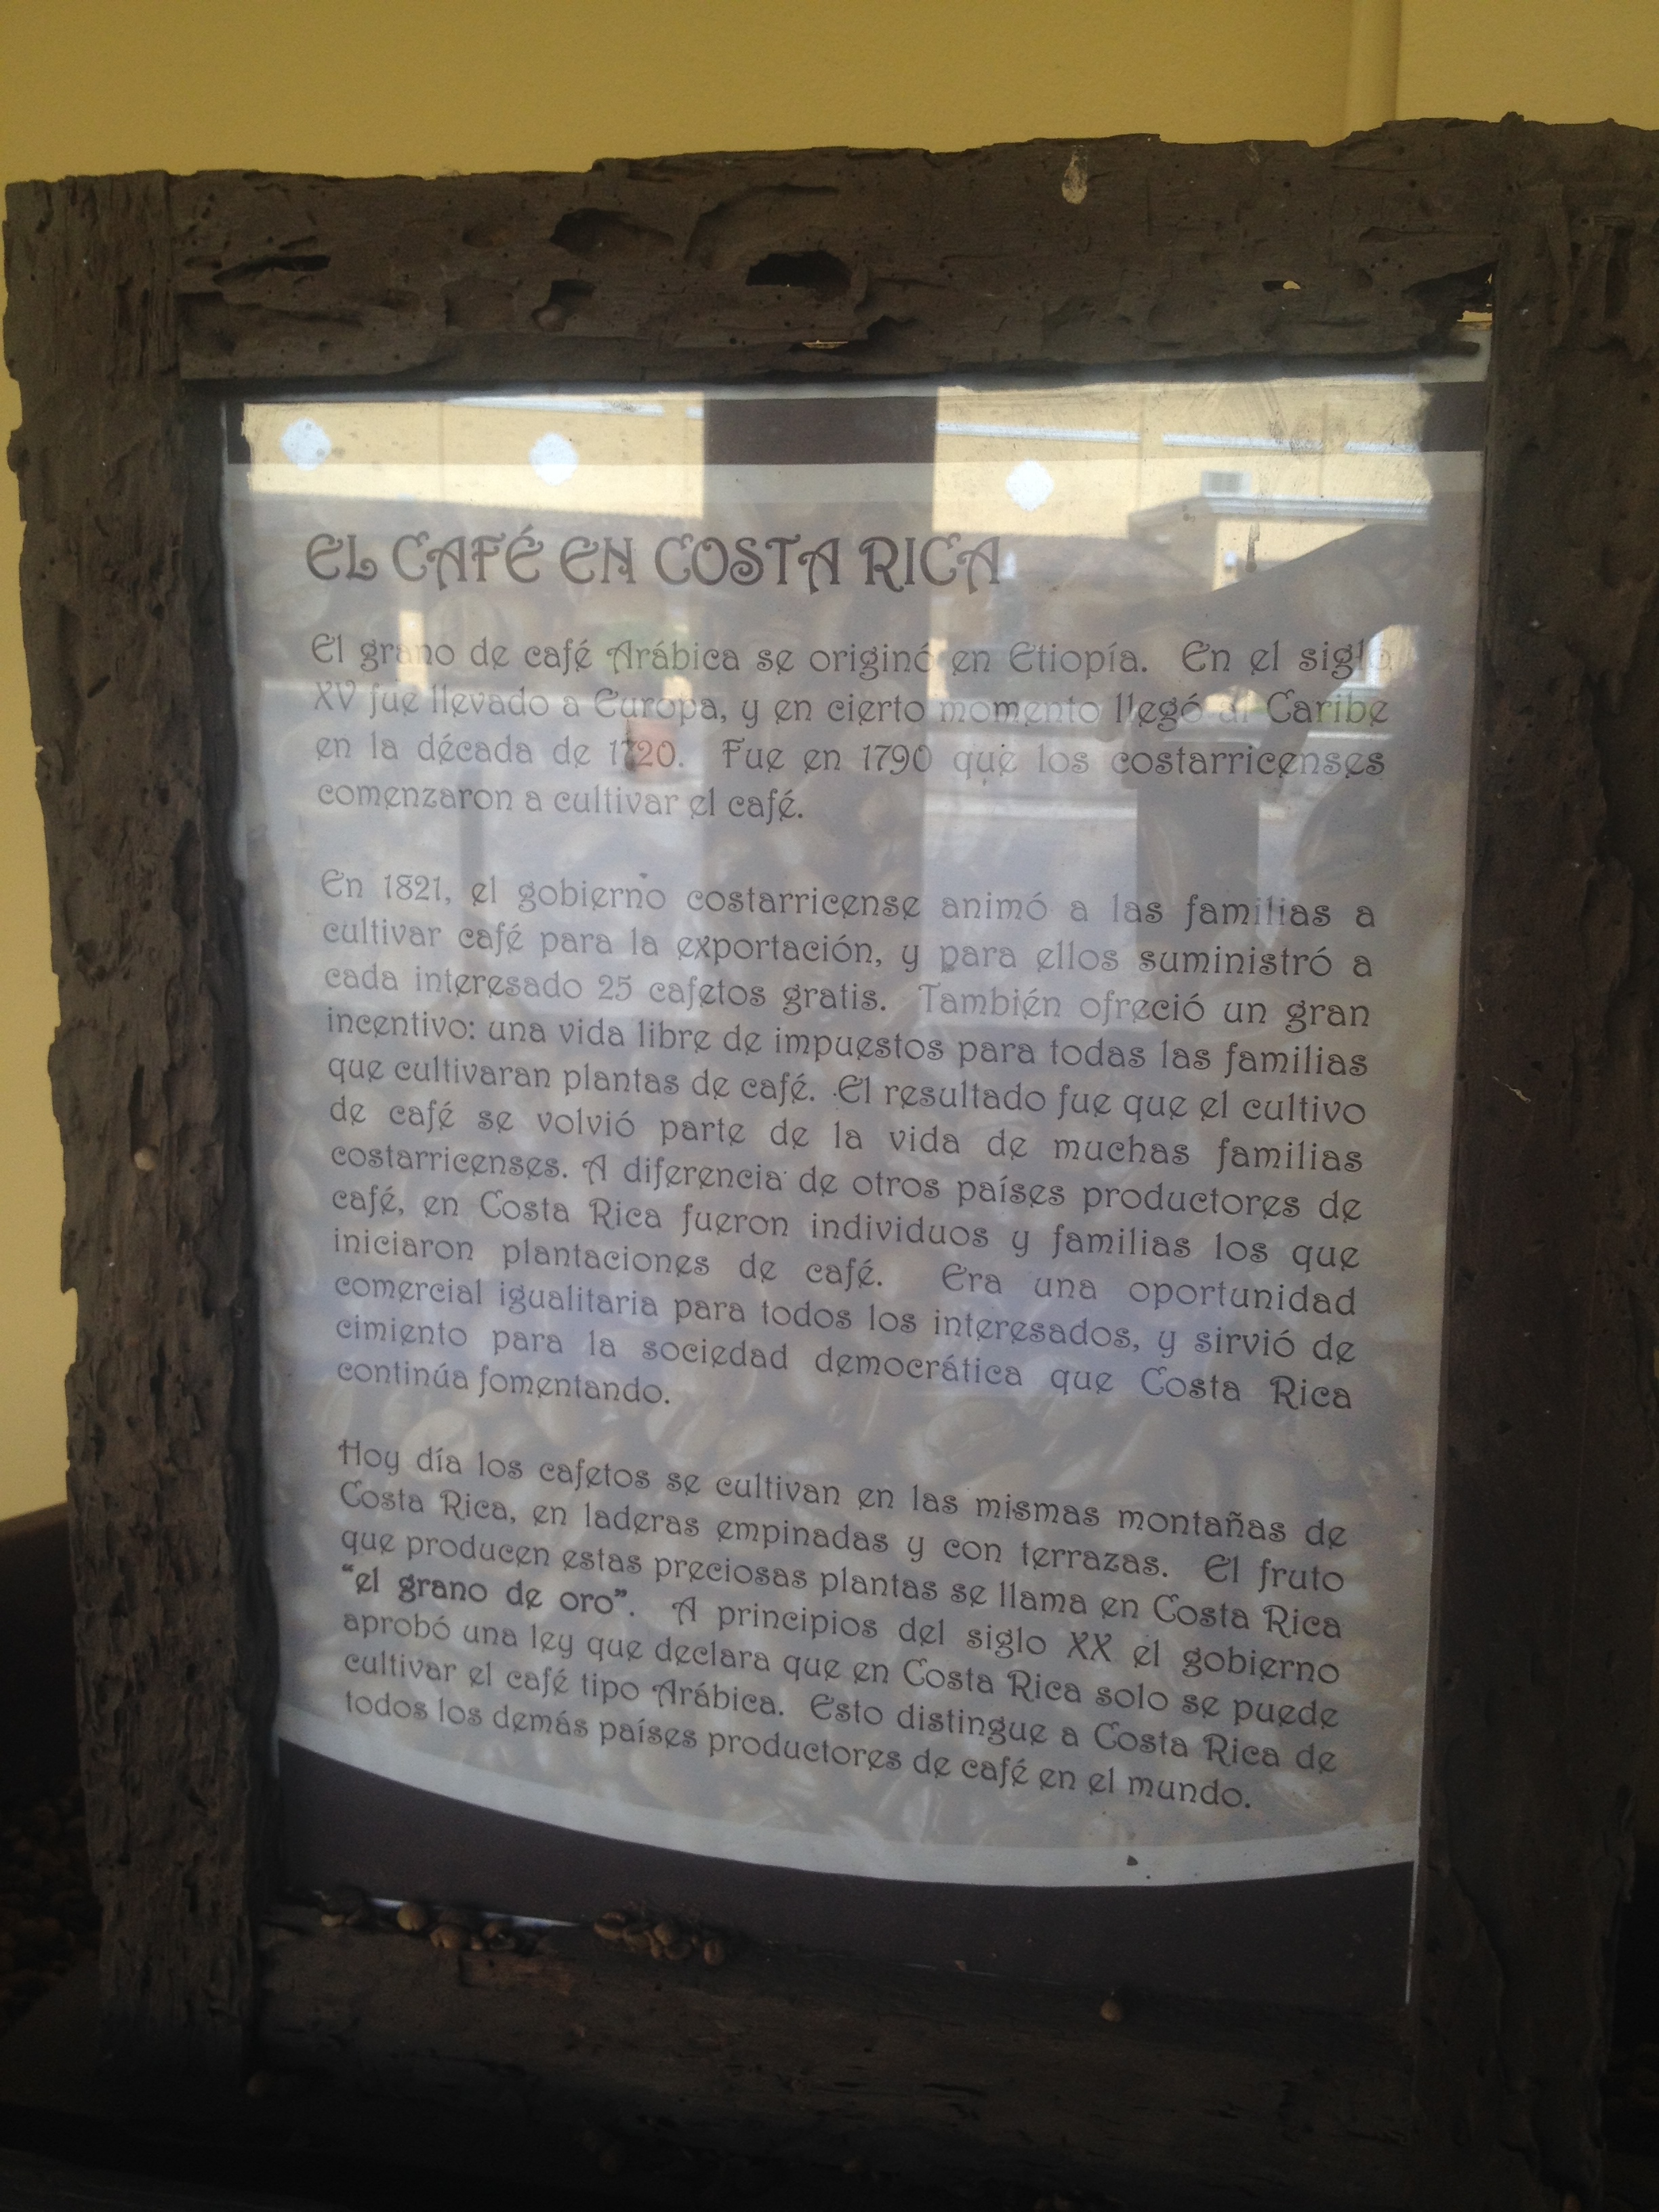 EL CAFÉ EN COSTA RICA
El grano de café Arábica se originó en Etiopía. En el siglo
XV fue llevado a Europa, y en cierto momento llegó al Caribe
en la década de 1720. Fue en 1790 que los costarricenses
comenzaron a cultivar el café.
En 1821, el gobierno costarricense animó a las familias a
cultivar café para la exportación, y para ellos suministró a
cada interesado 25 cafetos gratis. También ofreció un gran
incentivo: una vida libre de impuestos para todas las familias
que cultivaran plantas de café. El resultado fue que el cultivo
de café se volvió parte de la vida de muchas familias
costarricenses. A diferencia de otros países productores de
café, en Costa Rica fueron individuos y familias los que
iniciaron plantaciones de café. Era una oportunidad
comercial igualitaria para todos los interesados, y sirvió de
cimiento para la sociedad democrática que Costa Rica
continúa fomentando.
Hoy día los cafetos se cultivan en las mismas montañas de
Costa Rica, en laderas empinadas y con terrazas. El fruto
que producen estas preciosas plantas se llama en Costa Rica
“el grano de oro”. A principios del siglo XX el gobierno
aprobó una ley que declara que en Costa Rica solo se puede
cultivar el café tipo Arábica. Esto distingue a Costa Rica de
todos los demás países productores de café en el mundo.